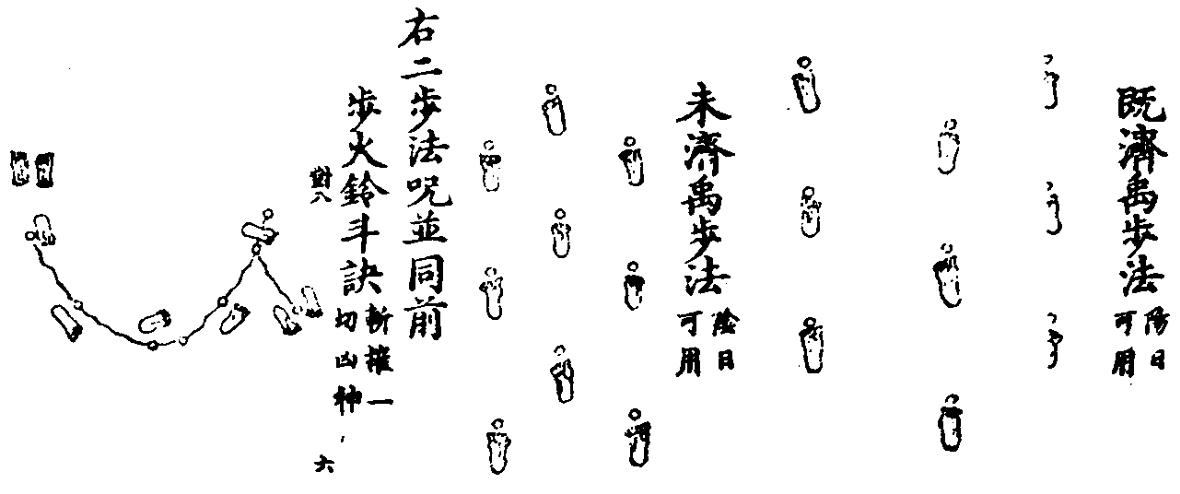 既濟禹步法陽日可用
未濟禹步法陰日可用
右二步法呪並同前
步火鈴斗訣斬摧一切凶神
對八
六